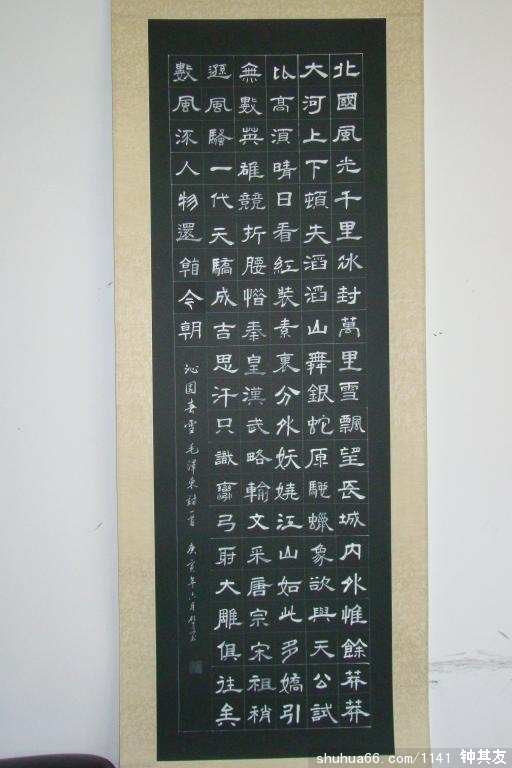 北國風光千里冰封萬里雪飄望長城內外惟餘莽莽
大河上下頓失滔滔山舞銀蛇原馳蠟象欲與天公試
比高須晴日看紅裝素裹分外妖嬈江山如此多嬌引
無數英雄競折腰惜秦皇漢武略輸文采唐宗宋祖稍
遜風騷一代天驕成吉思汗只識彎弓射大雕俱往矣
數風流人物還今朝
沁園春雪毛澤東詩一首 庚寅年六月
shuhua66.com/1141 钟其友